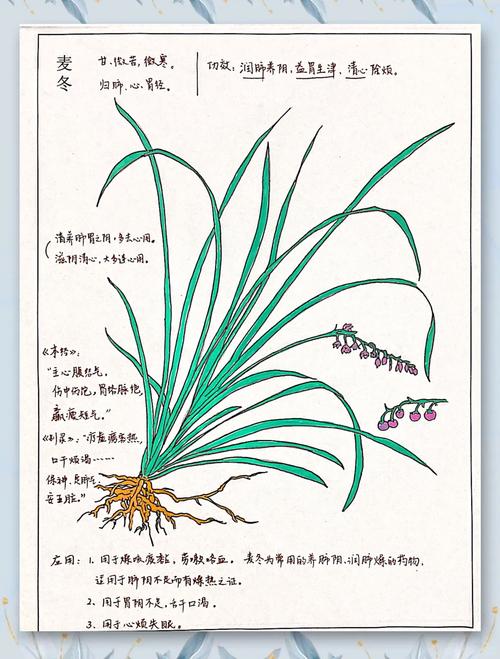 麦冬
甘、微苦，微寒。
归肺、心、胃经。
功效：润肺养阴，益胃生津，清心除烦。
清养肺胃之阴，多去心用。
滋阴清心，大多连心用。
《本经》：
"主心腹结气，
伤中伤饱，胃络脉绝，
羸瘦短气。"
《别录》：
口干烦渴……
保神，定肺气，
安五脏。"
应用：1. 用于燥咳痰黏，劳嗽咯血。 麦冬为常用的养肺阴、润肺燥的药物，
适用于肺阴不足而有燥热之证。
2. 用于胃阴不足，舌干口渴。
3. 用于心烦失眠。